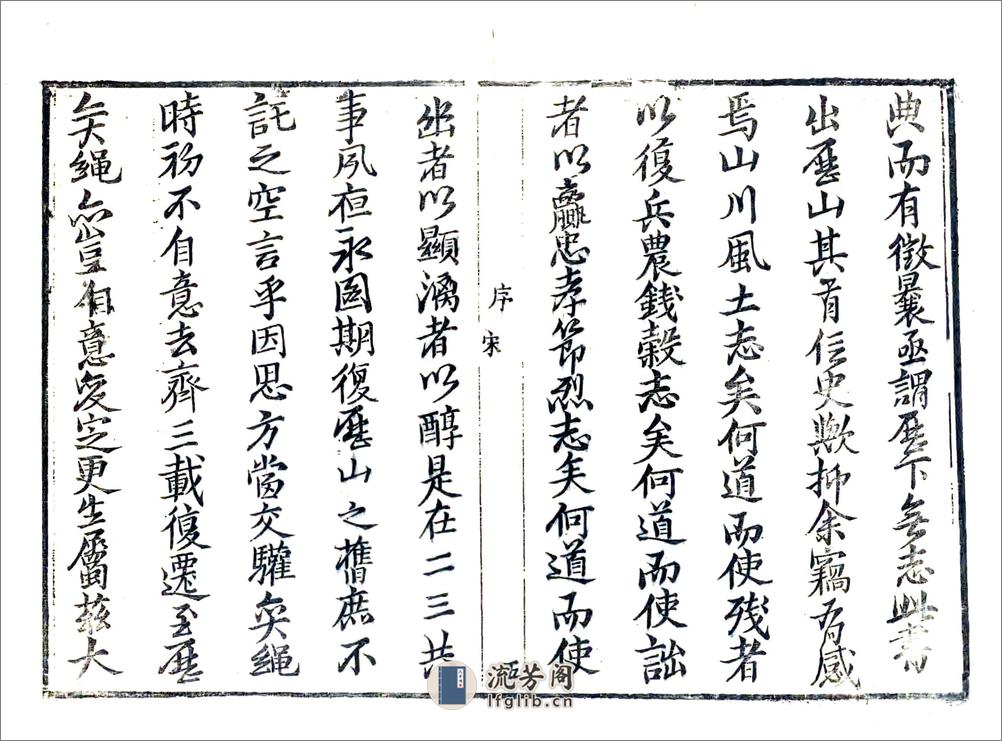 典而有徵曩亟謂歷下無志此書
出歷山其有信史歟抑余竊有感
焉山川風土志矣何道而使殘者
以復兵農錢穀志矣何道而使詘
者以羸忠孝節烈志矣何道而使
幽者以顯漓者以醇是在二三共
事夙夜永圖期復歷山之舊庶不
託之空言乎因思方當交驩奕繩
時初不自意去齊三載復遷至歷
矣繩亦豈自意受定更生屬茲大
序
宋
流芳阁
lfglib.cn